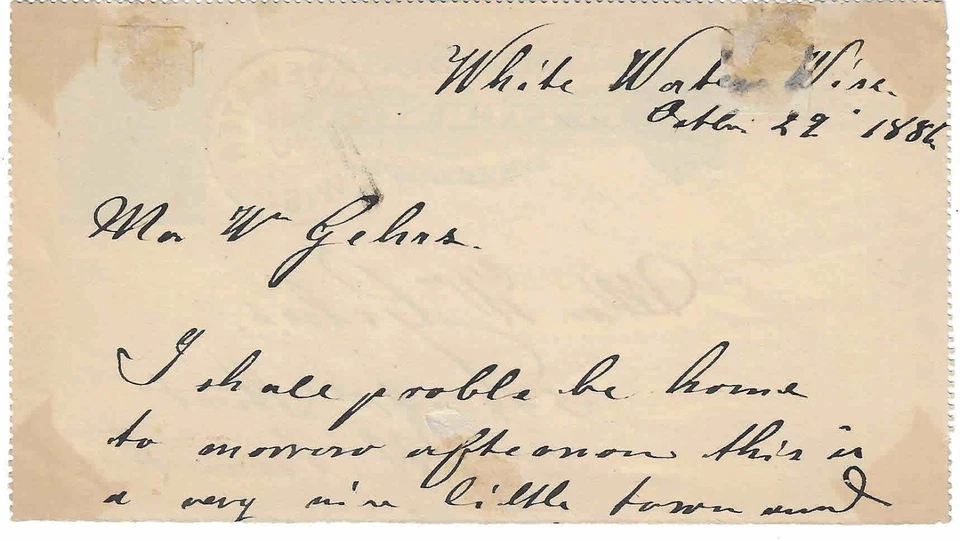 White Water Wisc.
October 29" 1886
Mr Wm Gehrs.
I shall probble be home
to morrow afternoon this is
a very nice little town and